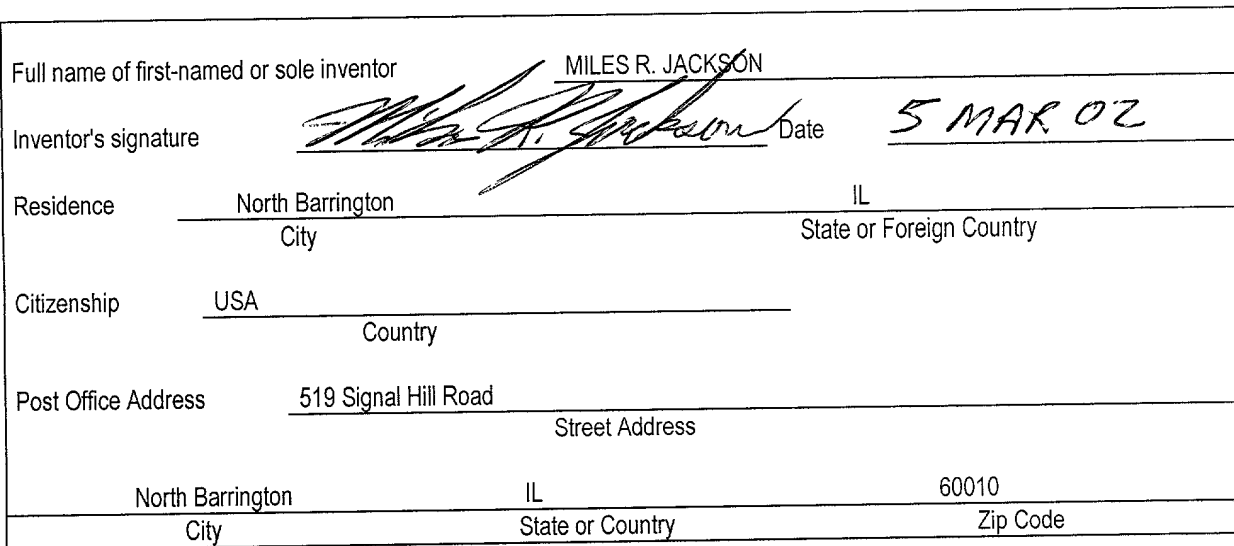 Full name of first-named or sole inventor MILES R. JACKSON
Inventor's signature Miles R. Jackson Date 5 MAR 02
Residence North Barrington IL
City State or Foreign Country
Citizenship USA
Country
Post Office Address 519 Signal Hill Road
Street Address
North Barrington IL 60010
City State or Country Zip Code